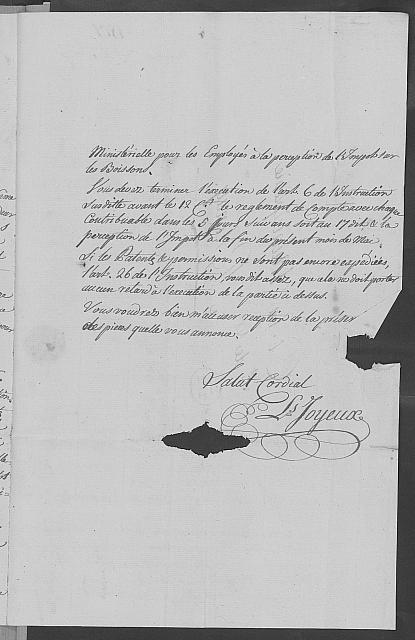 Ministérielle pour les Employés à la perception de l'Impot sur
les Boissons.
Vous devez terminer l'exécution de l'art. 6 de l'Instruction
Susditte avant le 12 Ct. le reglement de Compte avec chaque
Contribuable dans les 5 jours suivans soit au 17 dit & la
perception de l'Impot à la fin du présent mois de Mai.
Si les Patentes & permissions ne sont pas encore expédiées,
l'art. 26 de l'Instruction vous dit assez, que cela ne doit porter
aucun retard à l'exécution de la partie ci dessus.
Vous voudrez bien m'accuser reception de la présente
des pieces qu'elle vous annonce.
Salut Cordial
Ls Joyeux